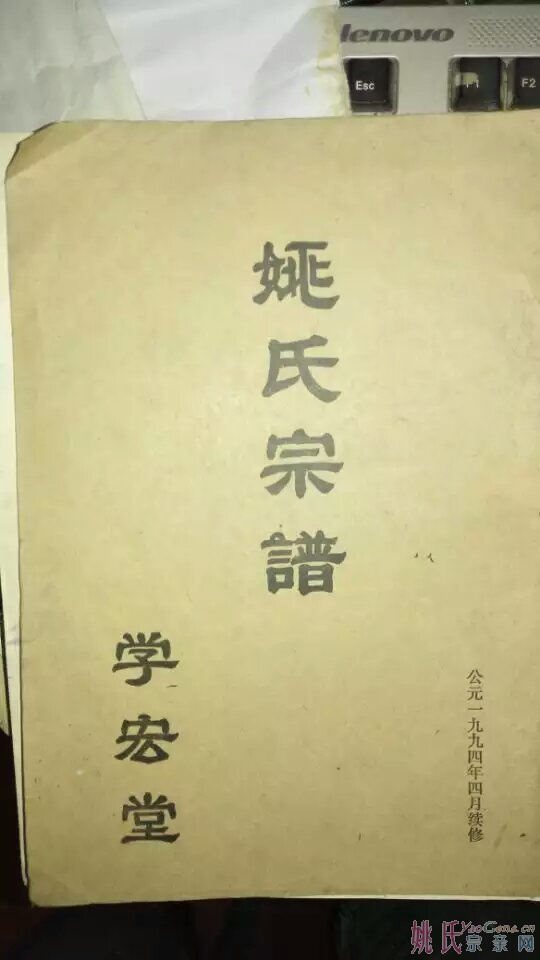 lenovo
Esc
F1
F2
姚氏宗譜
学宏堂
公元一九九四年四月续修
姚氏
YaoGens.cn
宗亲网